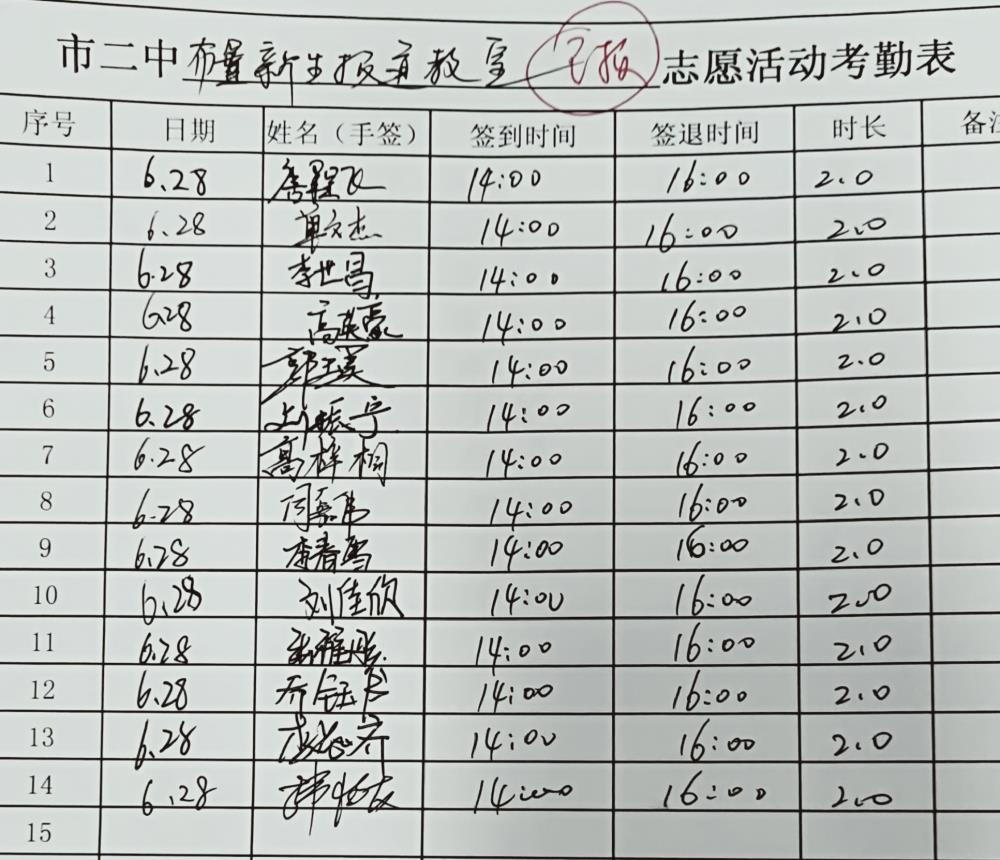 市二中布置新生报道教室 已报 志愿活动考勤表
序号 日期 姓名（手签） 签到时间 签退时间 时长 备注
1 6.28 14:00 16:00 2.0
2 6.28 单文杰 14:00 16:00 2.0
3 6.28 李世昌 14:00 16:00 2.0
4 6.28 高英豪 14:00 16:00 2.0
5 6.28 14:00 16:00 2.0
6 6.28 振宁 14:00 16:00 2.0
7 6.28 高梓桐 14:00 16:00 2.0
8 6.28 闫嘉伟 14:00 16:00 2.0
9 6.28 李春雪 14:00 16:00 2.0
10 6.28 刘佳欣 14:00 16:00 2.0
11 6.28 14:00 16:00 2.0
12 6.28 14:00 16:00 2.0
13 6.28 14:00 16:00 2.0
14 6.28 14:00 16:00 2.0
15